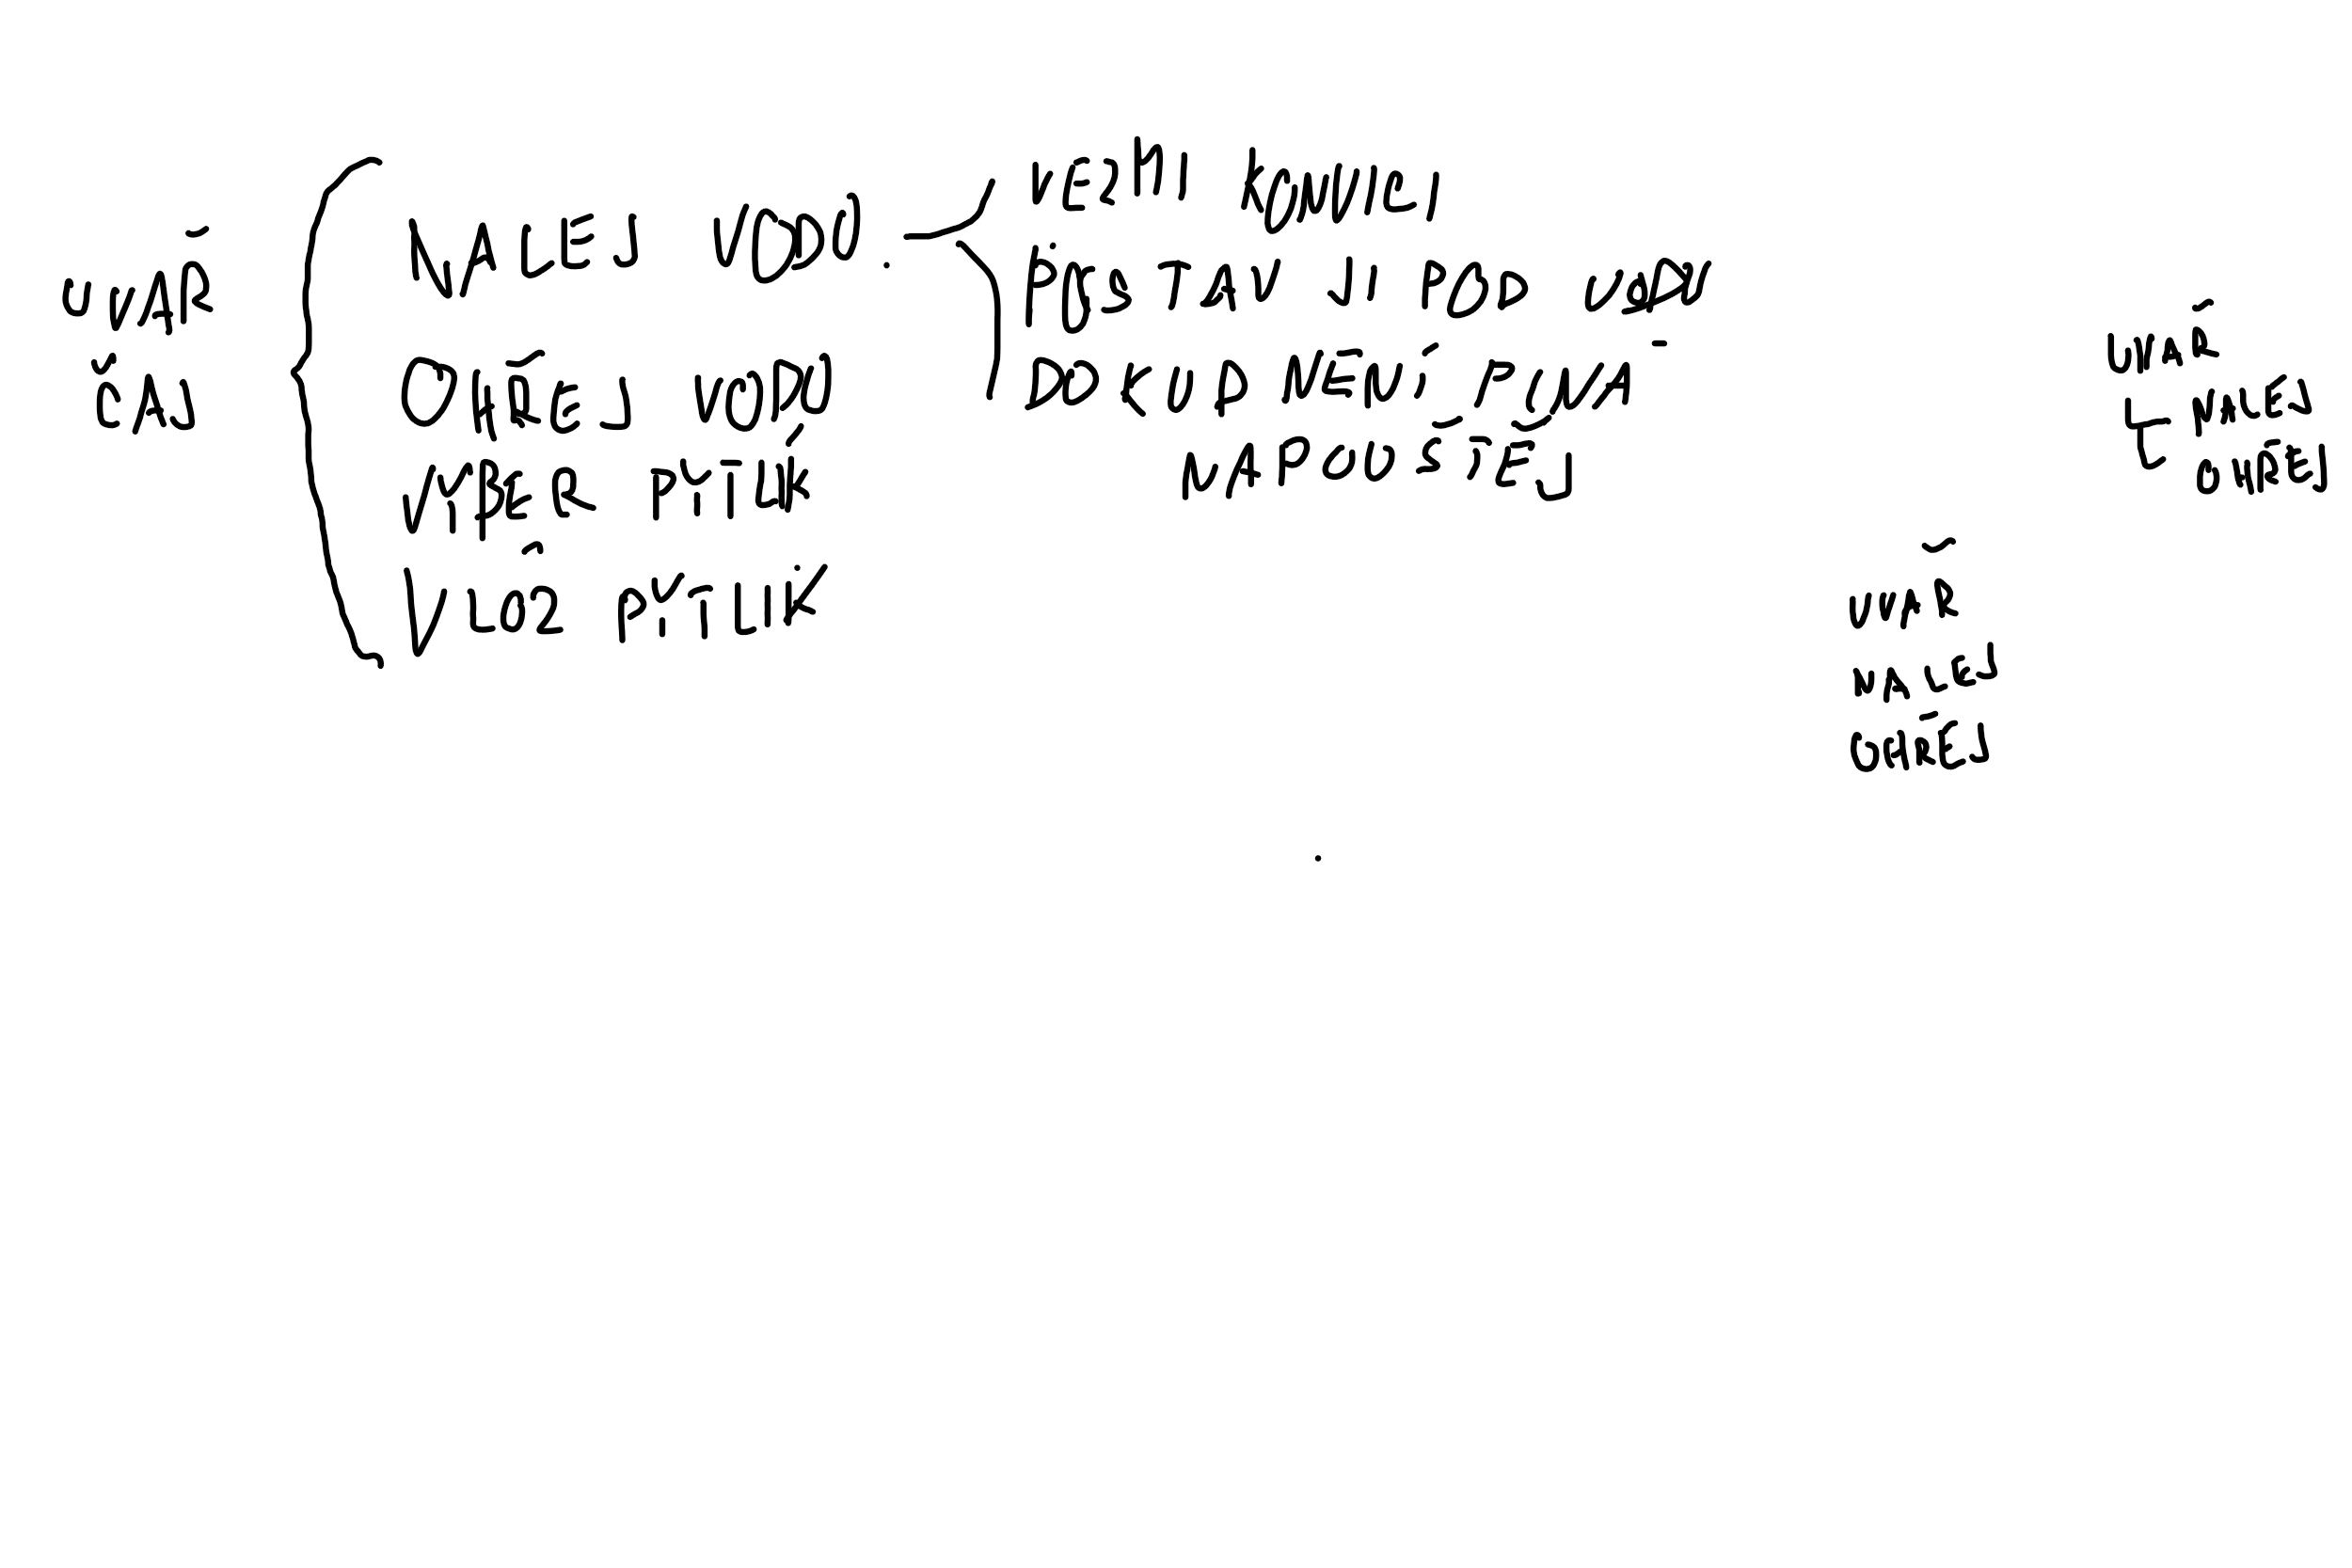 UVAŘ
ČAJ
NALEJ VODU.
OHŘEJ VODU
VYBER PYTLÍK
VLOŽ PYTLIK
VEZMI KONVICI
POSTAV JI POD
DOKUD NENÍ PLNÁ
NAPOUŠTĚJ
UVAŘ
NALEJ
OHŘEJ
UVAŘ
NALEJ
OHŘEJ